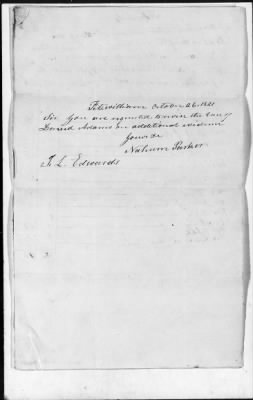 Fitzwilliam October 26. 1820
Sir You are requested to review the case of
Daniel Adams on additional evidence
Nahum Parker
J. L. Edwards